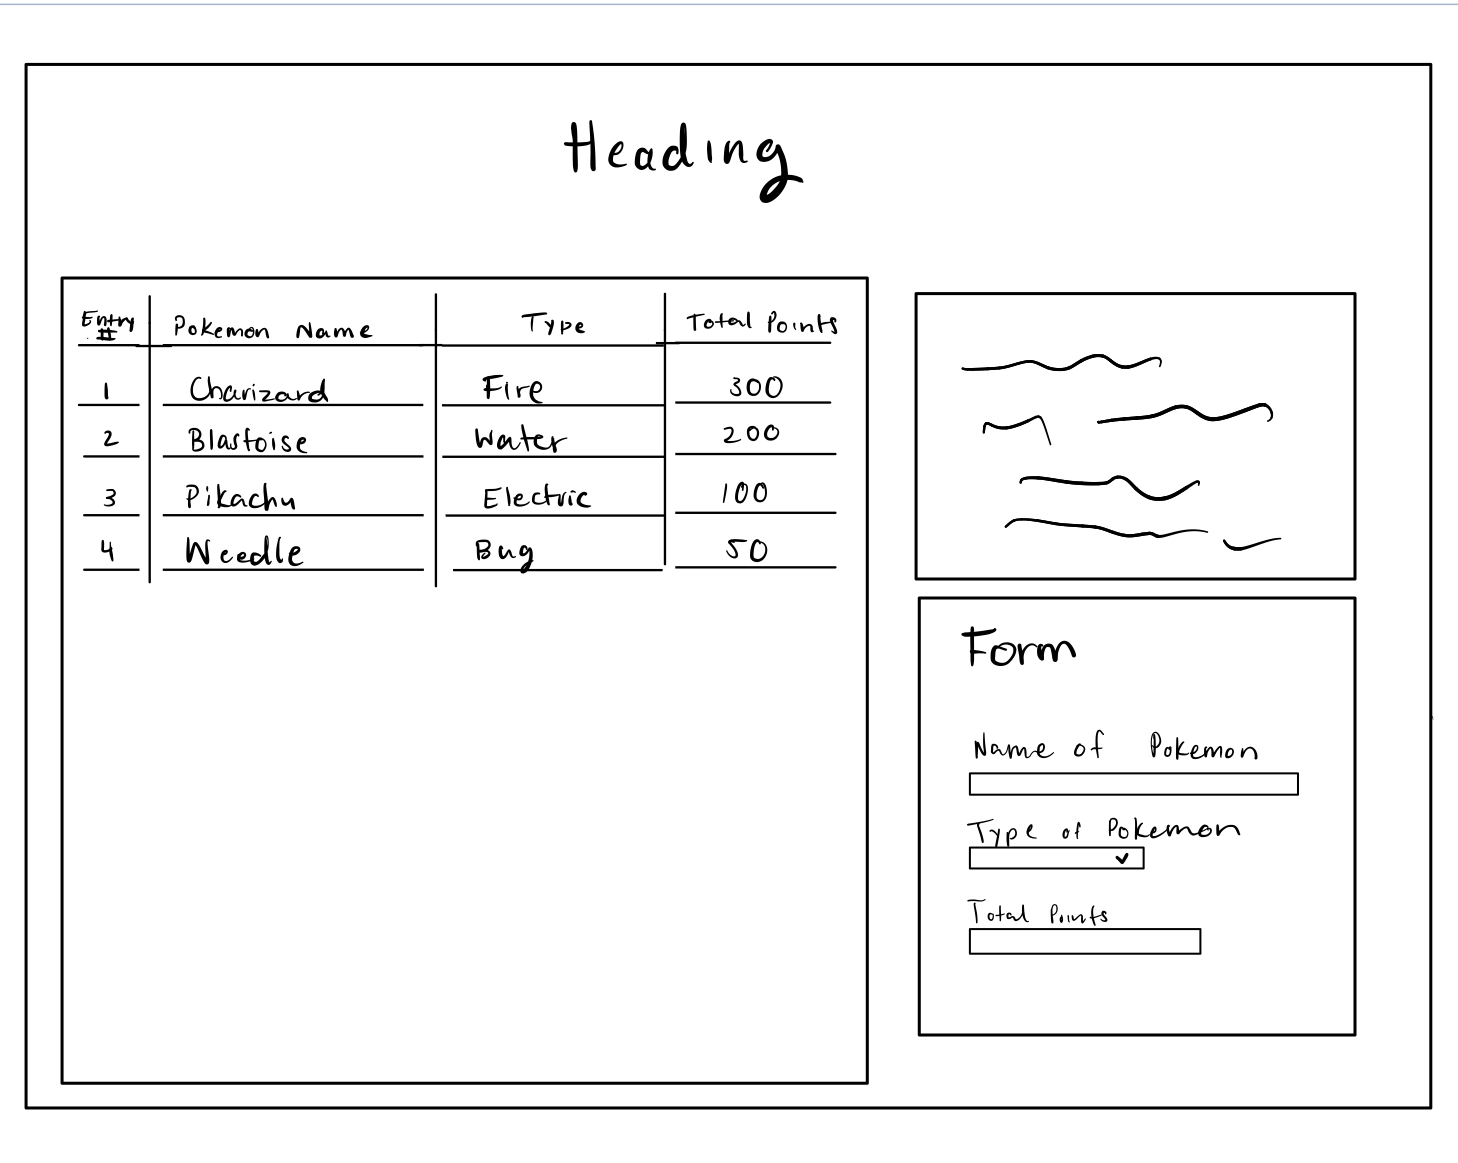 Heading
Entry # Pokemon Name Type Total Points
1 Charizard Fire 300
2 Blastoise Water 200
3 Pikachu Electric 100
4 Weedle Bug 50
Form
Name of Pokemon
Type of Pokemon
Total Points